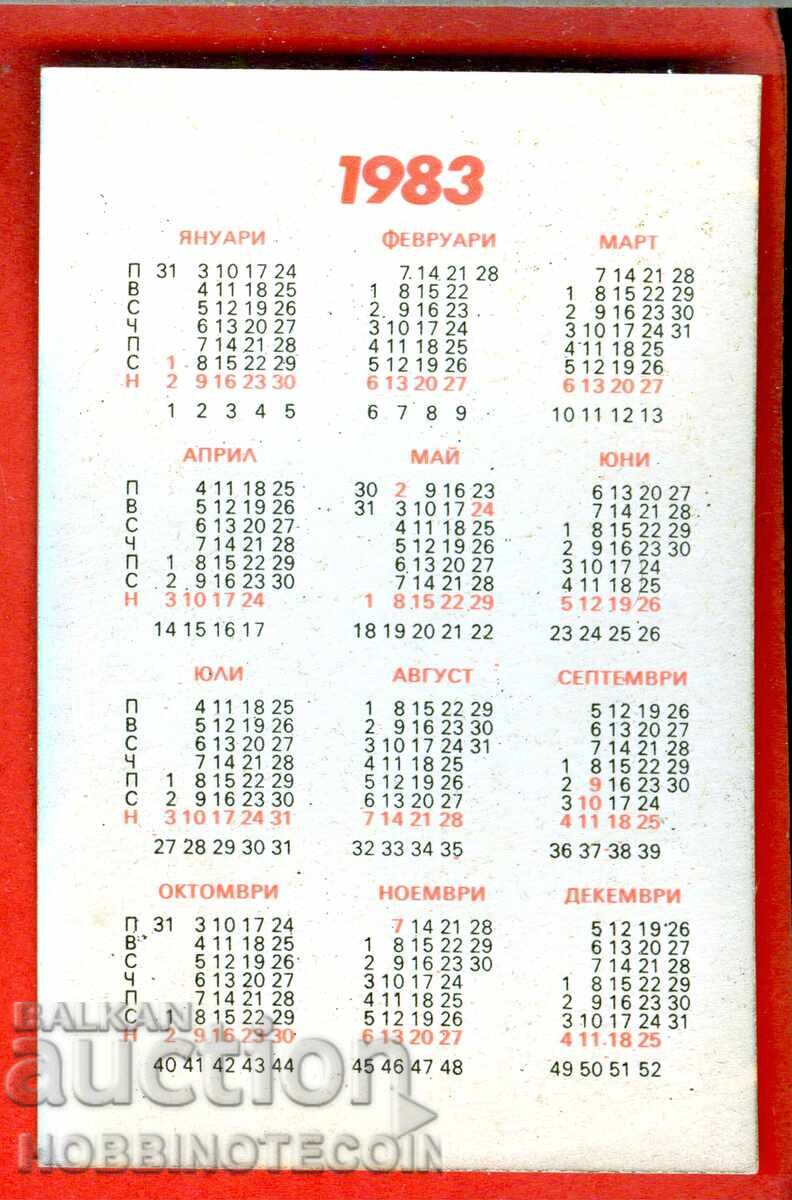 1983
ЯНУАРИ ФЕВРУАРИ МАРТ
П 31 3 10 17 24 7 14 21 28 7 14 21 28
В 4 11 18 25 1 8 15 22 1 8 15 22 29
С 5 12 19 26 2 9 16 23 2 9 16 23 30
Ч 6 13 20 27 3 10 17 24 3 10 17 24 31
П 7 14 21 28 4 11 18 25 4 11 18 25
С 1 8 15 22 29 5 12 19 26 5 12 19 26
Н 2 9 16 23 30 6 13 20 27 6 13 20 27
1 2 3 4 5 6 7 8 9 10 11 12 13
АПРИЛ МАЙ ЮНИ
П 4 11 18 25 30 2 9 16 23 6 13 20 27
В 5 12 19 26 31 3 10 17 24 7 14 21 28
С 6 13 20 27 4 11 18 25 1 8 15 22 29
Ч 7 14 21 28 5 12 19 26 2 9 16 23 30
П 1 8 15 22 29 6 13 20 27 3 10 17 24
С 2 9 16 23 30 7 14 21 28 4 11 18 25
Н 3 10 17 24 1 8 15 22 29 5 12 19 26
14 15 16 17 18 19 20 21 22 23 24 25 26
ЮЛИ АВГУСТ СЕПТЕМВРИ
П 4 11 18 25 1 8 15 22 29 5 12 19 26
В 5 12 19 26 2 9 16 23 30 6 13 20 27
С 6 13 20 27 3 10 17 24 31 7 14 21 28
Ч 7 14 21 28 4 11 18 25 1 8 15 22 29
П 1 8 15 22 29 5 12 19 26 2 9 16 23 30
С 2 9 16 23 30 6 13 20 27 3 10 17 24
Н 3 10 17 24 31 7 14 21 28 4 11 18 25
27 28 29 30 31 32 33 34 35 36 37 38 39
ОКТОМВРИ НОЕМВРИ ДЕКЕМВРИ
П 31 3 10 17 24 7 14 21 28 5 12 19 26
В 4 11 18 25 1 8 15 22 29 6 13 20 27
С 5 12 19 26 2 9 16 23 30 7 14 21 28
Ч 6 13 20 27 3 10 17 24 1 8 15 22 29
П 7 14 21 28 4 11 18 25 2 9 16 23 30
С 1 8 15 22 29 5 12 19 26 3 10 17 24 31
Н 2 9 16 23 30 6 13 20 27 4 11 18 25
40 41 42 43 44 45 46 47 48 49 50 51 52
BALKAN
auction
HOBBINOTECOIN